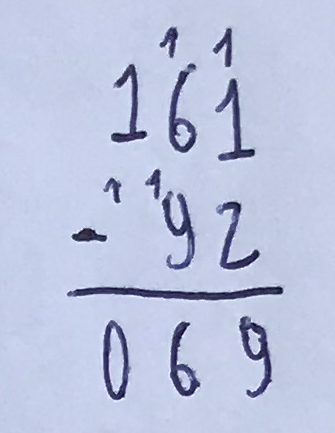 1 1
161
1 1
- 92
069